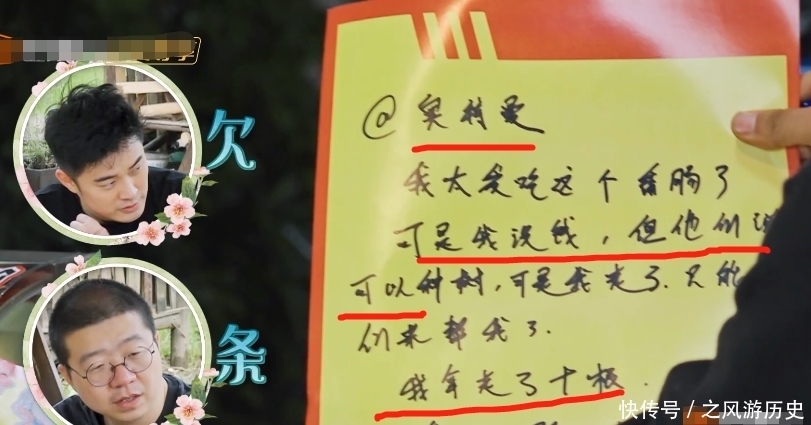 欠
条
@奥特曼
我太爱吃这个香肠了
可是我没钱，但他们说
可以种树，可是我走了.只能
们来帮我了.
我拿走了十根.
快传号／之风游历史